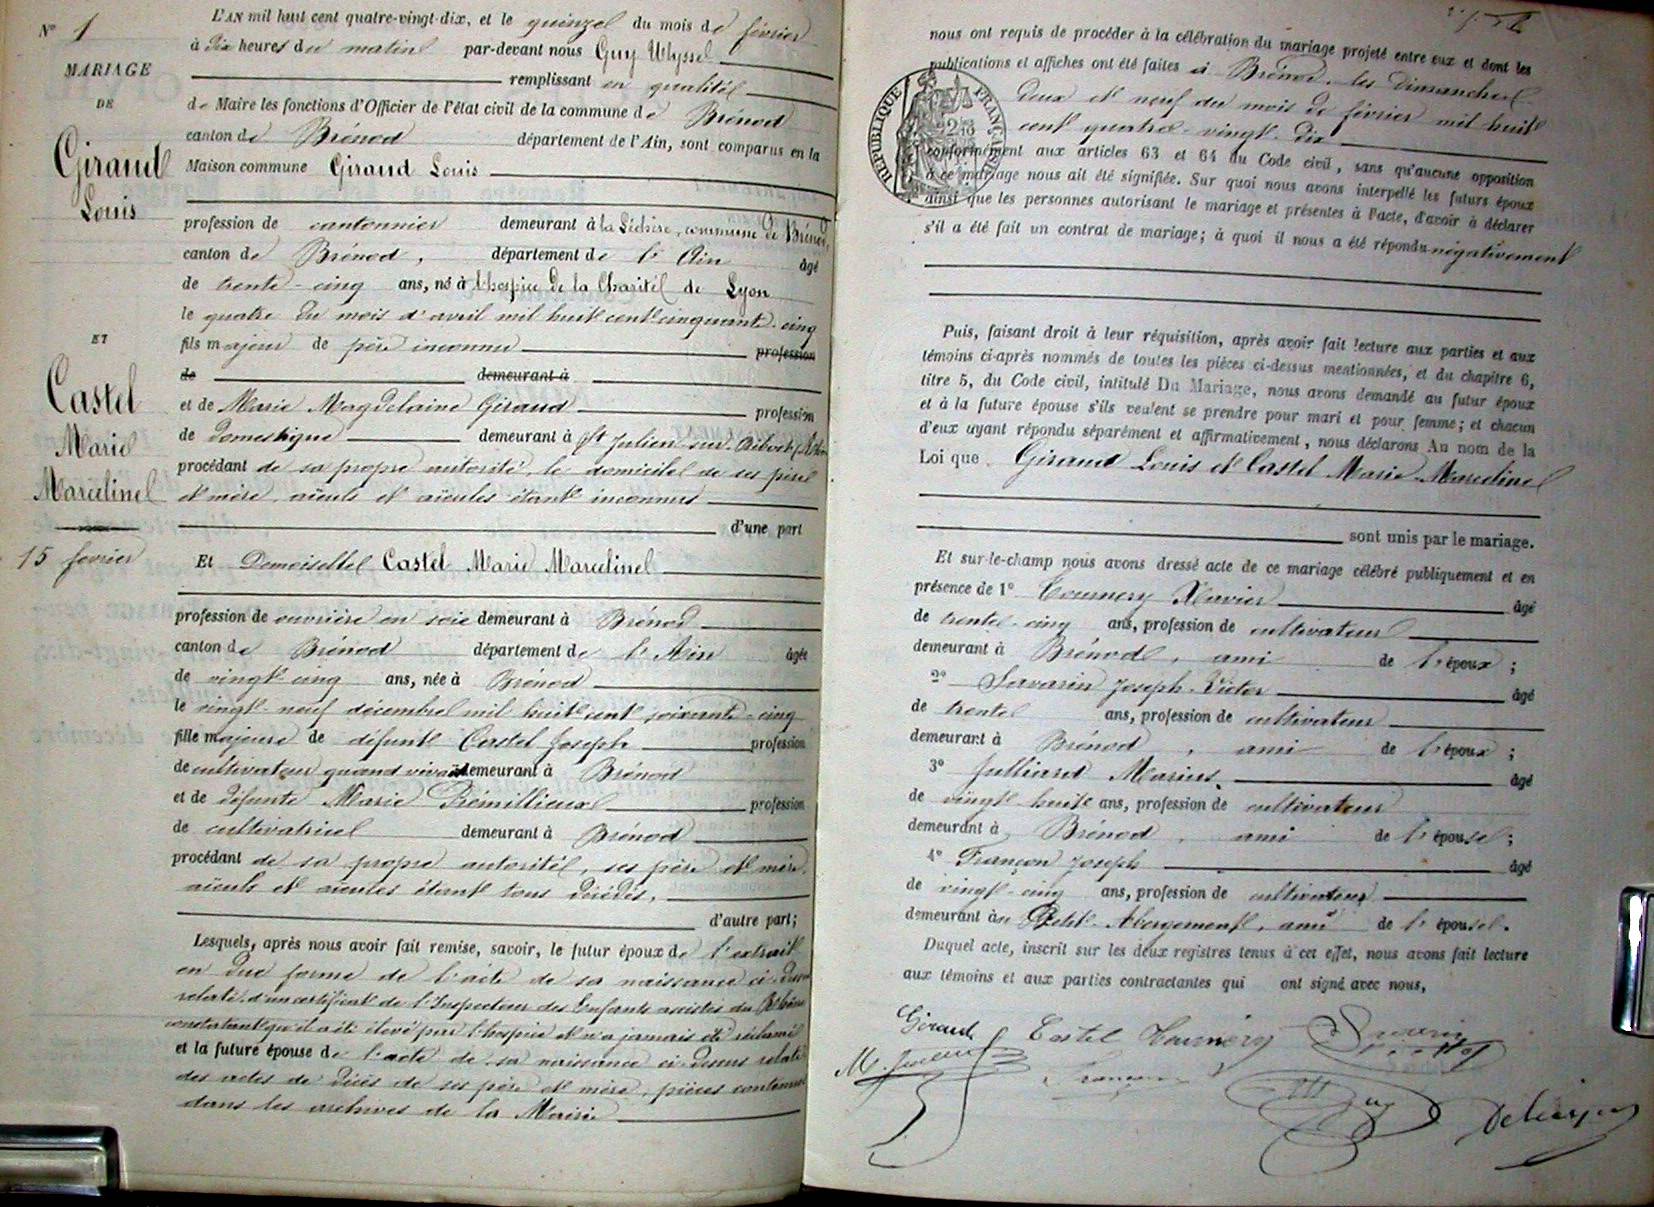 N° 1
MARIAGE
DE
Giraud
Louis
ET
Castel
Marie
Marceline
15 fevrier
L'AN mil huit cent quatre-vingt-dix, et le quinze du mois de février
à dix heures du matin par-devant nous Guy Ulysse
remplissant en qualité
de Maire les fonctions d'Officier de l'état civil de la commune de Brénod
canton de Brénod département de l'Ain, sont comparus en la
Maison commune Giraud Louis
profession de cantonnier demeurant à la Léchère, commune de Brénod,
canton de Brénod, département de l'Ain âgé
de trente-cinq ans, né à l'hospice de la Charité de Lyon
le quatre du mois d'avril mil huit cent cinquante-cinq
fils majeur de père inconnu profession
de demeurant à
et de Marie Magdelaine Giraud profession
de domestique demeurant à St Julien-sur-
procédant de sa propre autorité, le domicile de ses père
et mère, aïeuls et aïeules étant inconnus
d'une part
Et Demoiselle Castel Marie Marceline
profession de ouvrière en soie demeurant à Brénod
canton de Brénod département de l'Ain âgée
de vingt cinq ans, née à Brénod
le vingt-neuf décembre mil huit cent soixante-cinq
fille majeure de défunt Castel Joseph profession
de cultivateur quand vivait demeurant à Brénod
et de défunte Marie Prémillieux profession
de cultivatrice demeurant à Brénod
procédant de sa propre autorité, ses père et mère,
aïeuls et aïeules étant tous décédés,
d'autre part;
Lesquels, après nous avoir fait remise, savoir, le futur époux de l'extrait
en due forme de l'acte de sa naissance ci-dessus
relaté, d'un certificat de l'Inspecteur des Enfants assistés du Rhône
constatant qu'il a été élevé par l'hospice et n'a jamais été réclamé
et la future épouse de l'acte de sa naissance ci-dessus relaté
des actes de décès de ses père et mère, pièces contenues
dans les archives de la Mairie
nous ont requis de procéder à la célébration du mariage projeté entre eux et dont les
publications et affiches ont été faites à Brénod, les dimanches
deux et neuf du mois de février mil huit
cent quatre-vingt-dix
RÉPUBLIQUE FRANÇAISE
conformément aux articles 63 et 64 du Code civil, sans qu'aucune opposition
à ce mariage nous ait été signifiée. Sur quoi nous avons interpellé les futurs époux
ainsi que les personnes autorisant le mariage et présentes à l'acte, d'avoir à déclarer
s'il a été fait un contrat de mariage; à quoi il nous a été répondu négativement
Puis, faisant droit à leur réquisition, après avoir fait lecture aux parties et aux
témoins ci-après nommés de toutes les pièces ci-dessus mentionnées, et du chapitre 6,
titre 5, du Code civil, intitulé Du Mariage, nous avons demandé au futur époux
et à la future épouse s'ils veulent se prendre pour mari et pour femme; et chacun
d'eux ayant répondu séparément et affirmativement, nous déclarons Au nom de la
Loi que Giraud Louis et Castel Marie-Marceline
sont unis par le mariage.
Et sur-le-champ nous avons dressé acte de ce mariage célébré publiquement et en
présence de 1° Tournery Xavier âgé
de trente-cinq ans, profession de cultivateur
demeurant à Brénod, ami de l'époux;
2° Savarin Joseph-Victor âgé
de trente ans, profession de cultivateur
demeurant à Brénod, ami de l'époux;
3° Julliard Marius, âgé
de vingt-huit ans, profession de cultivateur
demeurant à Brénod, ami de l'épouse;
4° Françon Joseph âgé
de vingt-cinq ans, profession de cultivateur
demeurant au Petit-Abergement, ami de l'épouse.
Duquel acte, inscrit sur les deux registres tenus à cet effet, nous avons fait lecture
aux témoins et aux parties contractantes qui ont signé avec nous,
Giraud Castel Tournery Savarin
Françon Guy